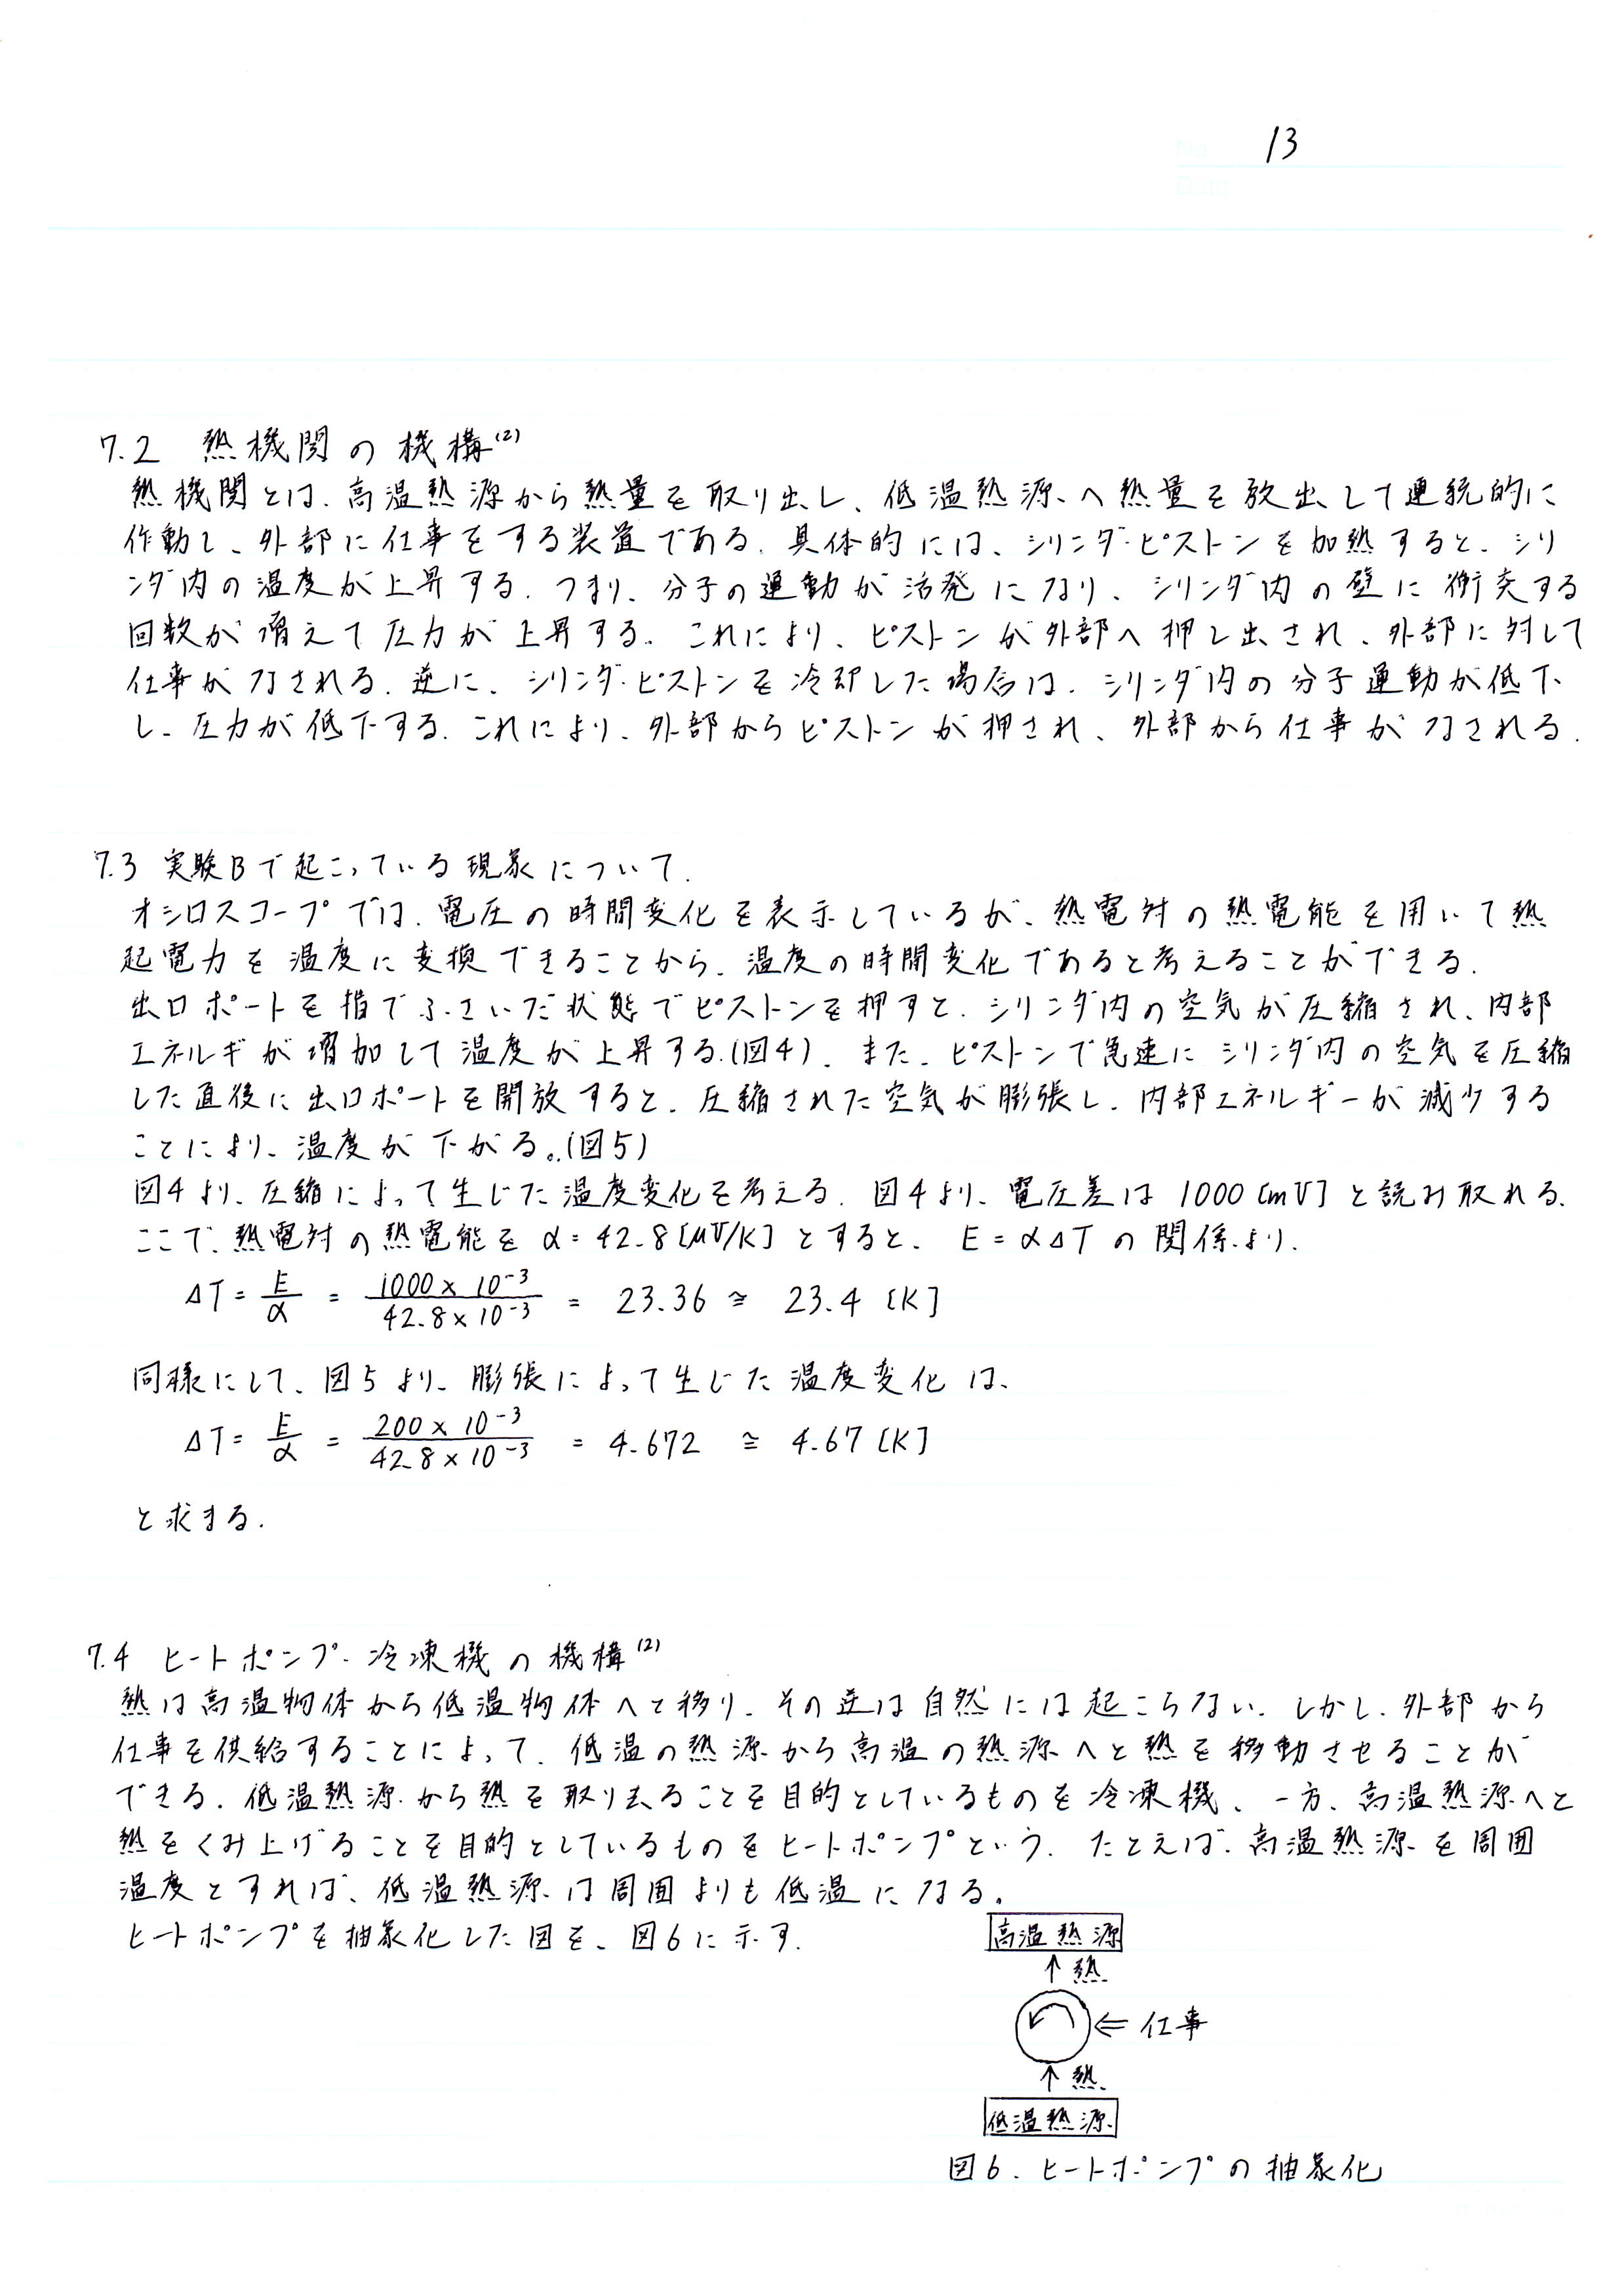 No. 13
Date
7.2 熱機関の機構(2)
熱機関とは、高温熱源から熱量を取り出し、低温熱源へ熱量を放出して連続的に
作動し、外部に仕事をする装置である。具体的には、シリンダ・ピストンを加熱すると、シリ
ンダ内の温度が上昇する。つまり、分子の運動が活発になり、シリンダ内の壁に衝突する
回数が増えて圧力が上昇する。これにより、ピストンが外部へ押し出され、外部に対して
仕事がなされる。逆に、シリンダ・ピストンを冷却した場合は、シリンダ内の分子運動が低下
し、圧力が低下する。これにより、外部からピストンが押され、外部から仕事がなされる。
7.3 実験Bで起こっている現象について.
オシロスコープでは、電圧の時間変化を表示しているが、熱電対の熱電能を用いて熱
起電力を温度に変換できることから、温度の時間変化であると考えることができる.
出口ポートを指でふさいだ状態でピストンを押すと、シリンダ内の空気が圧縮され、内部
エネルギが増加して温度が上昇する.(図4). また、ピストンで急速にシリンダ内の空気を圧縮
した直後に出口ポートを開放すると、圧縮された空気が膨張し、内部エネルギーが減少する
ことにより、温度が下がる。(図5)
図4より、圧縮によって生じた温度変化を考える. 図4より、電圧差は1000[mV]と読み取れる.
ここで、熱電対の熱電能をα=42.8[μV/K]とすると、E=αΔTの関係より.
ΔT = E/α = 1000×10⁻³/42.8×10⁻³ = 23.36 ≅ 23.4 [K]
同様にして、図5より、膨張によって生じた温度変化は、
ΔT = E/α = 200×10⁻³/42.8×10⁻³ = 4.672 ≅ 4.67 [K]
と求まる.
7.4 ヒートポンプ・冷凍機の機構(2)
熱は高温物体から低温物体へと移り、その逆は自然には起こらない. しかし、外部から
仕事を供給することによって、低温の熱源から高温の熱源へと熱を移動させることが
できる. 低温熱源から熱を取り去ることを目的としているものを冷凍機、一方、高温熱源へと
熱をくみ上げることを目的としているものをヒートポンプという. たとえば、高温熱源を周囲
温度とすれば、低温熱源は周囲よりも低温になる。
ヒートポンプを抽象化した図を、図6に示す.
高温熱源
↑ 熱
⇐ 仕事
↑ 熱
低温熱源
図6. ヒートポンプの抽象化